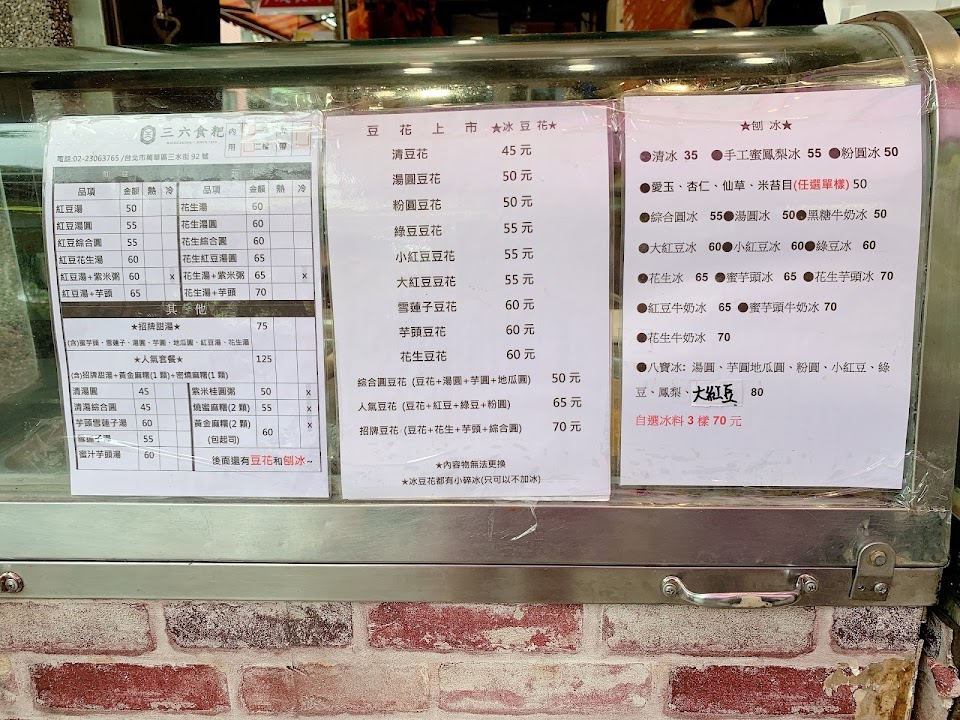 三六食粑
內用 二樓
電話:02-23063765 /台北市萬華區三水街 92 號
品項 金額 熱 冷 品項 金額 熱 冷
紅豆湯 50 花生湯 60
紅豆湯圓 55 花生湯圓 60
紅豆綜合圓 55 花生綜合圓 60
紅豆花生湯 60 花生紅豆湯圓 65
紅豆湯+紫米粥 60 x 花生湯+紫米粥 65 x
紅豆湯+芋頭 65 花生湯+芋頭 70
其 他
★招牌甜湯★ 75
(含)蜜芋頭、雪蓮子、湯圓、芋圓、地瓜圓、紅豆湯、花生湯
★人氣套餐★ 125
(含)招牌甜湯+黃金麻糬(1顆)+燒蜜麻糬(1顆)
清湯圓 45 紫米桂圓粥 50 x
清湯綜合圓 45 燒蜜麻糬(2顆) 55 x
芋頭雪蓮子湯 60 黃金麻糬(2顆) 60 x
雪蓮子湯 55 (包起司)
蜜汁芋頭湯 60 後面還有豆花和刨冰~
豆 花 上 市 ★冰豆花★
清豆花 45 元
湯圓豆花 50 元
粉圓豆花 50 元
綠豆豆花 55 元
小紅豆豆花 55 元
大紅豆豆花 55 元
雪蓮子豆花 60 元
芋頭豆花 60 元
花生豆花 60 元
綜合圓豆花 (豆花+湯圓+芋圓+地瓜圓) 50 元
人氣豆花 (豆花+紅豆+綠豆+粉圓) 65 元
招牌豆花 (豆花+花生+芋頭+綜合圓) 70 元
★內容物無法更換
★冰豆花都有小碎冰(只可以不加冰)
★刨冰★
●清冰 35 ●手工蜜鳳梨冰 55 ●粉圓冰 50
●愛玉、杏仁、仙草、米苔目(任選單樣) 50
●綜合圓冰 55 ●湯圓冰 50 ●黑糖牛奶冰 50
●大紅豆冰 60 ●小紅豆冰 60 ●綠豆冰 60
●花生冰 65 ●蜜芋頭冰 65 ●花生芋頭冰 70
●紅豆牛奶冰 65 ●蜜芋頭牛奶冰 70
●花生牛奶冰 70
●八寶冰: 湯圓、芋圓地瓜圓、粉圓、小紅豆、綠
豆、鳳梨、大紅豆 80
自選冰料 3 樣 70 元